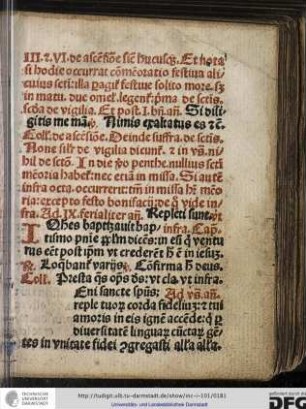 III. ⁊. VI. de ascēsiōe sic̄ hucusqꝫ. Et nota
si hodie occurrat cōmēoratio festiua ali
cuius scti: illa ꝑagit̄ festiue solito more. sꝫ
in matu. due omel̓. legent̄: pͥma de sctis.
scd̄a de vigilia. Et post. I. bn̄. an̄. Si dili
gitis me mā. Nimis exaltatus es ⁊c̄.
Coll̓. de ascēsiōe. Deinde suffra. de sctis.
None sil̓r de vigilia dicunt̄. ⁊ in vn̄. ni
hil de sctō. In die penthe. nullius sctī
memoria habet̄: nec etiā in missa. Si aut̄
infra octa. occurrerit: tm̄ in missa hꝫ mēo
ria: excepto festo bonifacij: de vide in
fra. Ad. IX. ferialiter an̄. Repleti sunt.
IOhes baptizauit
infra. Cap̄.
tusmo dicēs: in esī q̄ ventu
rus eēt post ipm vt crederēt h̄ ē in iesuꝫ.
Loq̄banť varijs. Cōfirma h̄ deus.
Coll̓. Presta qs ops ds: vt cla. vt infra.
Eni sancte spūs: Ad vs. an̄.
reple tuoꝝ corda fideliuꝫ: ⁊ tui
amoris in eis ignē accēde: q̄ ꝑ
diuersitatē linguaꝝ cūctaꝝ gē
tes in vnitate fidei ꝯgregasti alla alla.
http://tudigit.ulb.tu-darmstadt.de/show/inc-i-101/0181
Universitäts- und Landesbibliothek Darmstadt
TECHNISCHE
UNIVERSITÄT
DARMSTADT
DFG